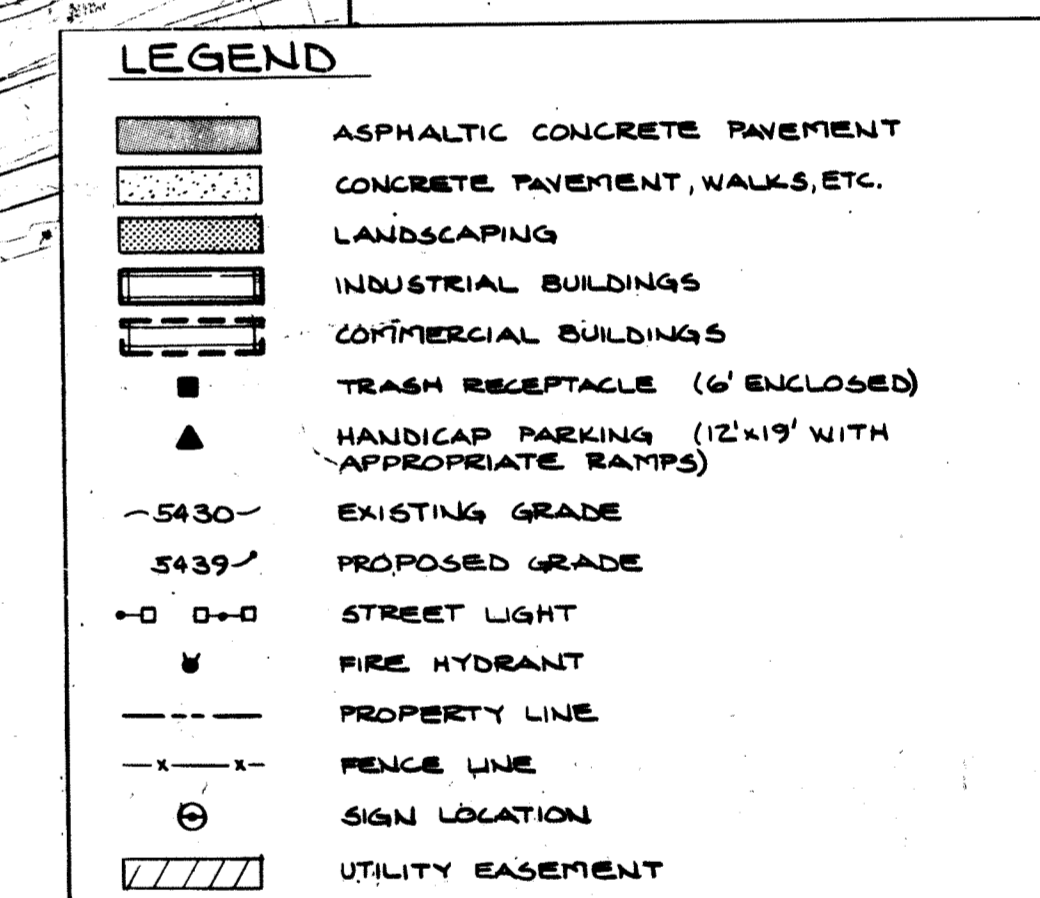 LEGEND
ASPHALTIC CONCRETE PAVEMENT
CONCRETE PAVEMENT, WALKS, ETC.
LANDSCAPING
INDUSTRIAL BUILDINGS
COMMERCIAL BUILDINGS
TRASH RECEPTACLE (6' ENCLOSED)
HANDICAP PARKING (12'x19' WITH
APPROPRIATE RAMPS)
5430 EXISTING GRADE
5439 PROPOSED GRADE
STREET LIGHT
FIRE HYDRANT
PROPERTY LINE
x x FENCE LINE
SIGN LOCATION
UTILITY EASEMENT